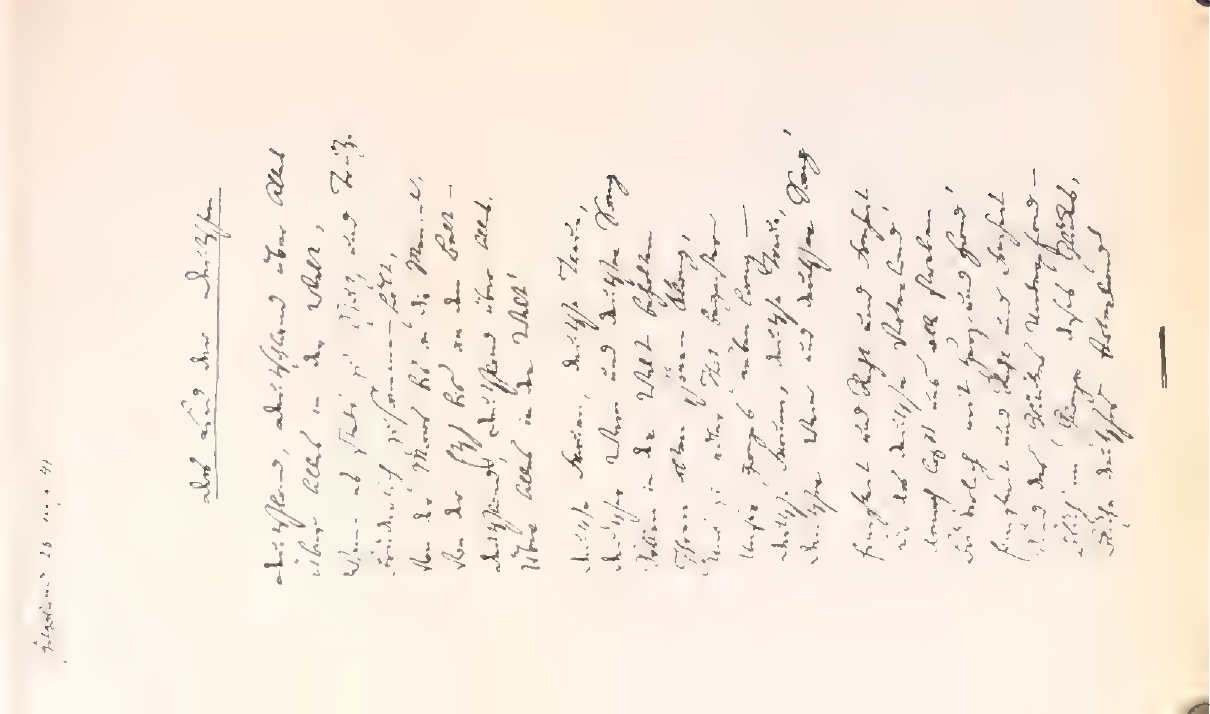 Helgoland 26 Aug 41
Das Lied der Deutschen
Deutschland, Deutschland über Alles
Über Alles in der Welt,
Wenn es stets zu Schutz und Trutz
Brüderlich zusammenhält,
Von der Maas bis an die Memel,
Von der Etsch bis an den Belt –
Deutschland, Deutschland über Alles,
Über Alles in der Welt!
Deutsche Frauen, deutsche Treue,
Deutscher Wein und deutscher Sang
Sollen in der Welt behalten
Ihren alten schönen Klang,
Uns zu edler That begeistern
Unser ganzes Leben lang –
Deutsche Frauen, deutsche Treue,
Deutscher Wein und deutscher Sang!
Einigkeit und Recht und Freiheit
Für das deutsche Vaterland!
Danach lasst uns alle streben
Brüderlich mit Herz und Hand!
Einigkeit und Recht und Freiheit
Sind des Glückes Unterpfand –
Blüh im Glanze dieses Glückes,
Blühe deutsches Vaterland!